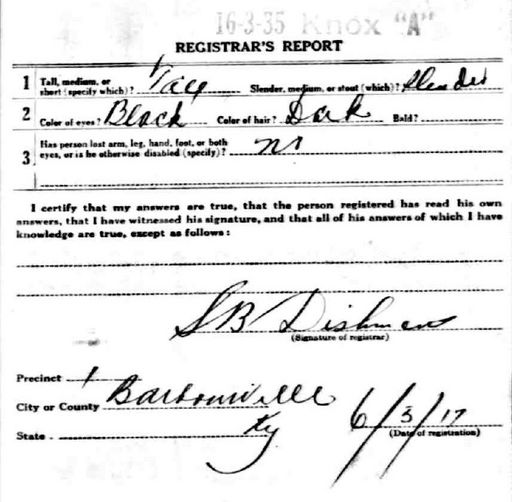 16-3-35 Knox "A"
REGISTRAR'S REPORT
1 Tall, medium, or short (specify which)? Tall Slender, medium, or stout (which)? Slender
2 Color of eyes? Black Color of hair? Dark Bald?
3 Has person lost arm, leg, hand, foot, or both eyes, or is he otherwise disabled (specify)? no
I certify that my answers are true, that the person registered has read his own
answers, that I have witnessed his signature, and that all of his answers of which I have
knowledge are true, except as follows:
S B Dishman
(Signature of registrar)
Precinct 1
City or County Barbourville
State Ky 6/3/17
(Date of registration)